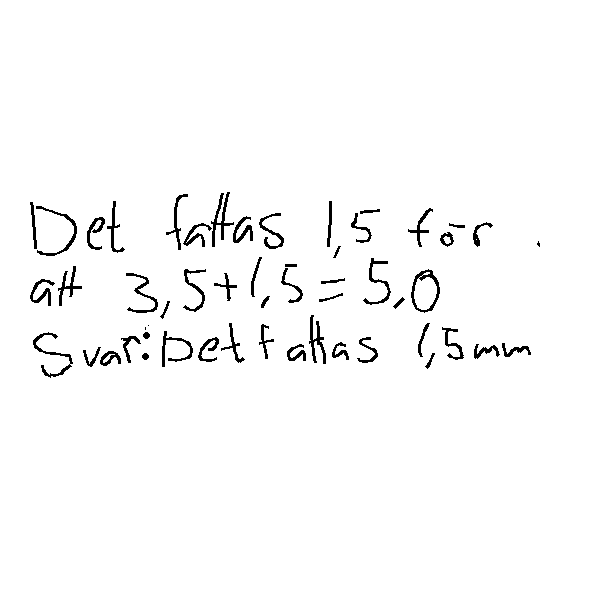 Det fattas 1,5 för
att 3,5+1,5=5,0
Svar: Det fattas 1,5 mm